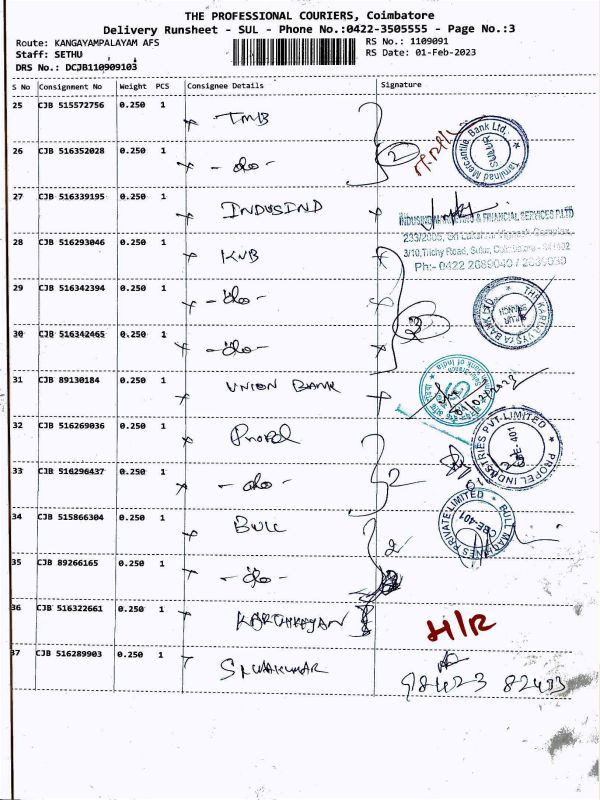 THE PROFESSIONAL COURIERS, Coimbatore
Delivery Runsheet - SUL - Phone No.:0422-3505555 - Page No.:3
Route: KANGAYAMPALAYAM AFS RS No.: 1109091
Staff: SETHU RS Date: 01-Feb-2023
DRS No.: DCJB110909103
S No Consignment No Weight PCS Consignee Details Signature
25 CJB 515572756 0.250 1 TMB
Tamilnad Mercantile Bank Ltd. SULUR
26 CJB 516352028 0.250 1 - do - 2
27 CJB 516339195 0.250 1 INDUSIND
INDUSIND MARKETING & FINANCIAL SERVICES P.LTD
28 CJB 516293046 0.250 1 KVB
233/2005, Sri Lakshmi Vignesh Complex,
3/10, Trichy Road, Sulur, Coimbatore - 641402
Ph:- 0422 2689040 /
29 CJB 516342394 0.250 1 - do -
THE KARUR VYSYA BANK LTD SULUR BRANCH
30 CJB 516342465 0.250 1 - do - 3
31 CJB 89130184 0.250 1 UNION BANK
32 CJB 516269036 0.250 1 Propel
PROPEL INDUSTRIES PVT LIMITED CBE-401
33 CJB 516296437 0.250 1 - do - 2
34 CJB 515866304 0.250 1 BULL
BULL MACHINES PRIVATE LIMITED CBE-401
2
35 CJB 89266165 0.250 1 - do -
36 CJB 516322661 0.250 1 KARTHIKAYAN H/R
37 CJB 516289903 0.250 1 SIVAKUMAR